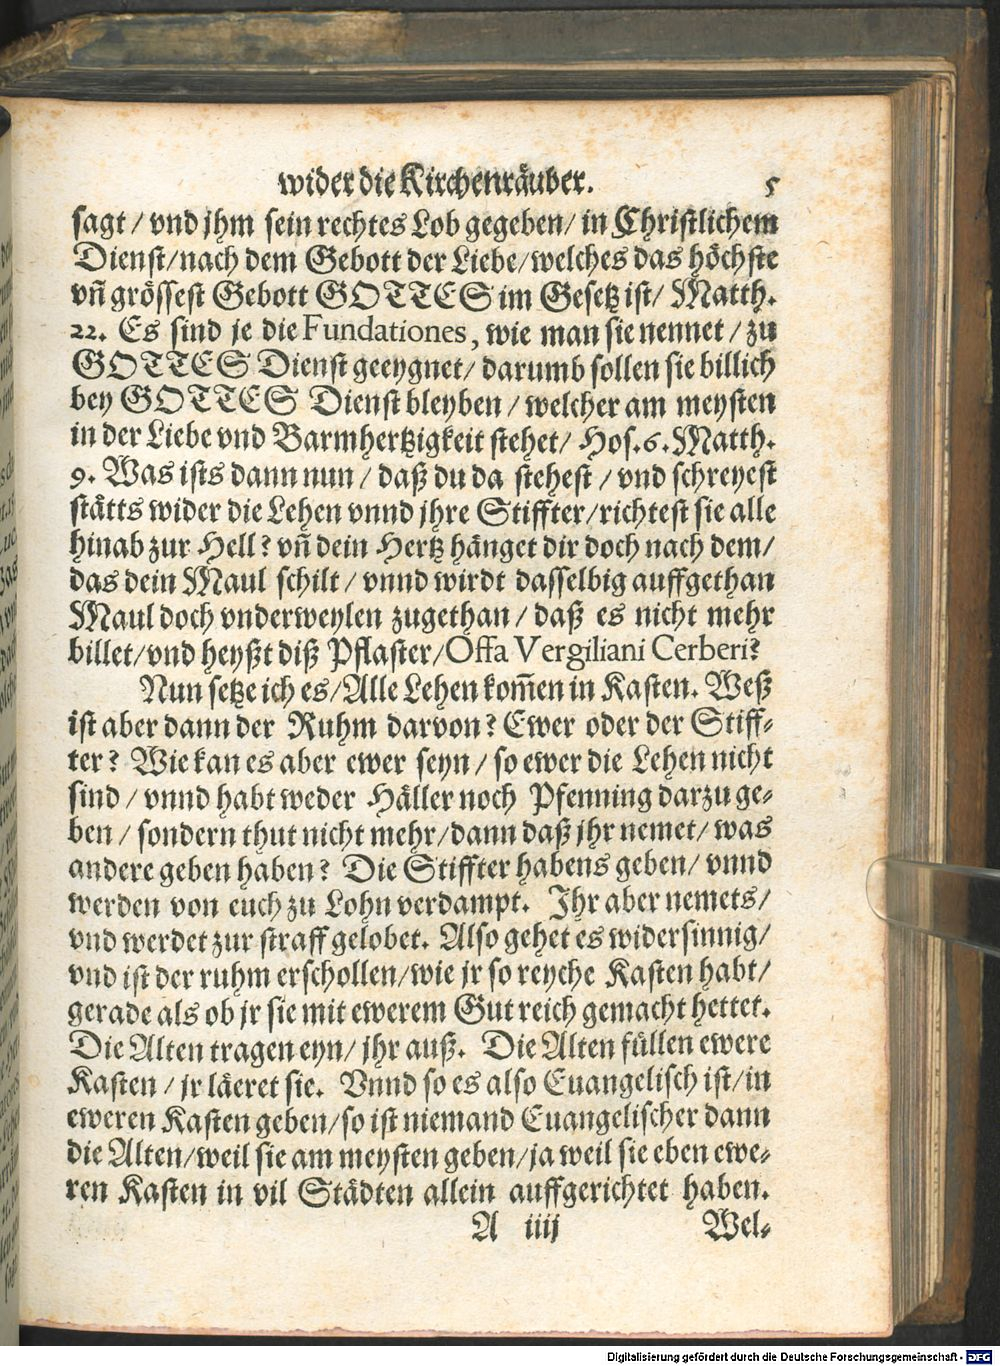 wider die Kirchenräuber. 5
sagt / vnd jhm sein rechtes Lob gegeben / in Christlichem
Dienst / nach dem Gebott der Liebe / welches das höchste
vñ grössest Gebott GOTTES im Gesetz ist / Matth.
22. Es sind je die Fundationes, wie man sie nennet / zu
GOTTES Dienst geeygnet / darumb sollen sie billich
bey GOTTES Dienst bleyben / welcher am meysten
in der Liebe vnd Barmhertzigkeit stehet / Hos. 6. Matth.
9. Was ists dann nun / daß du da stehest / vnd schreyest
stätts wider die Lehen vnnd jhre Stiffter / richtest sie alle
hinab zur Hell? vñ dein Hertz hänget dir doch nach dem /
das dein Maul schilt / vnnd wirdt dasselbig auffgethan
Maul doch vnderweylen zugethan / daß es nicht mehr
billet / vnd heyßt diß Pflaster / Offa Vergiliani Cerberi?
Nun setze ich es / Alle Lehen kom̃en in Kasten. Weß
ist aber dann der Ruhm darvon? Ewer oder der Stiff-
ter? Wie kan es aber ewer seyn / so ewer die Lehen nicht
sind / vnnd habt weder Häller noch Pfenning darzu ge-
ben / sondern thut nicht mehr / dann daß jhr nemet / was
andere geben haben? Die Stiffter habens geben / vnnd
werden von euch zu Lohn verdampt. Ihr aber nemets /
vnd werdet zur straff gelobet. Also gehet es widersinnig /
vnd ist der ruhm erschollen / wie jr so reyche Kasten habt /
gerade als ob jr sie mit ewerem Gut reich gemacht hettet.
Die Alten tragen eyn / jhr auß. Die Alten füllen ewere
Kasten / jr läeret sie. Vnnd so es also Euangelisch ist / in
eweren Kasten geben / so ist niemand Euangelischer dann
die Alten / weil sie am meysten geben / ja weil sie eben ewe-
ren Kasten in vil Städten allein auffgerichtet haben.
A iiij Wel-
Digitalisierung gefördert durch die Deutsche Forschungsgemeinschaft - DFG